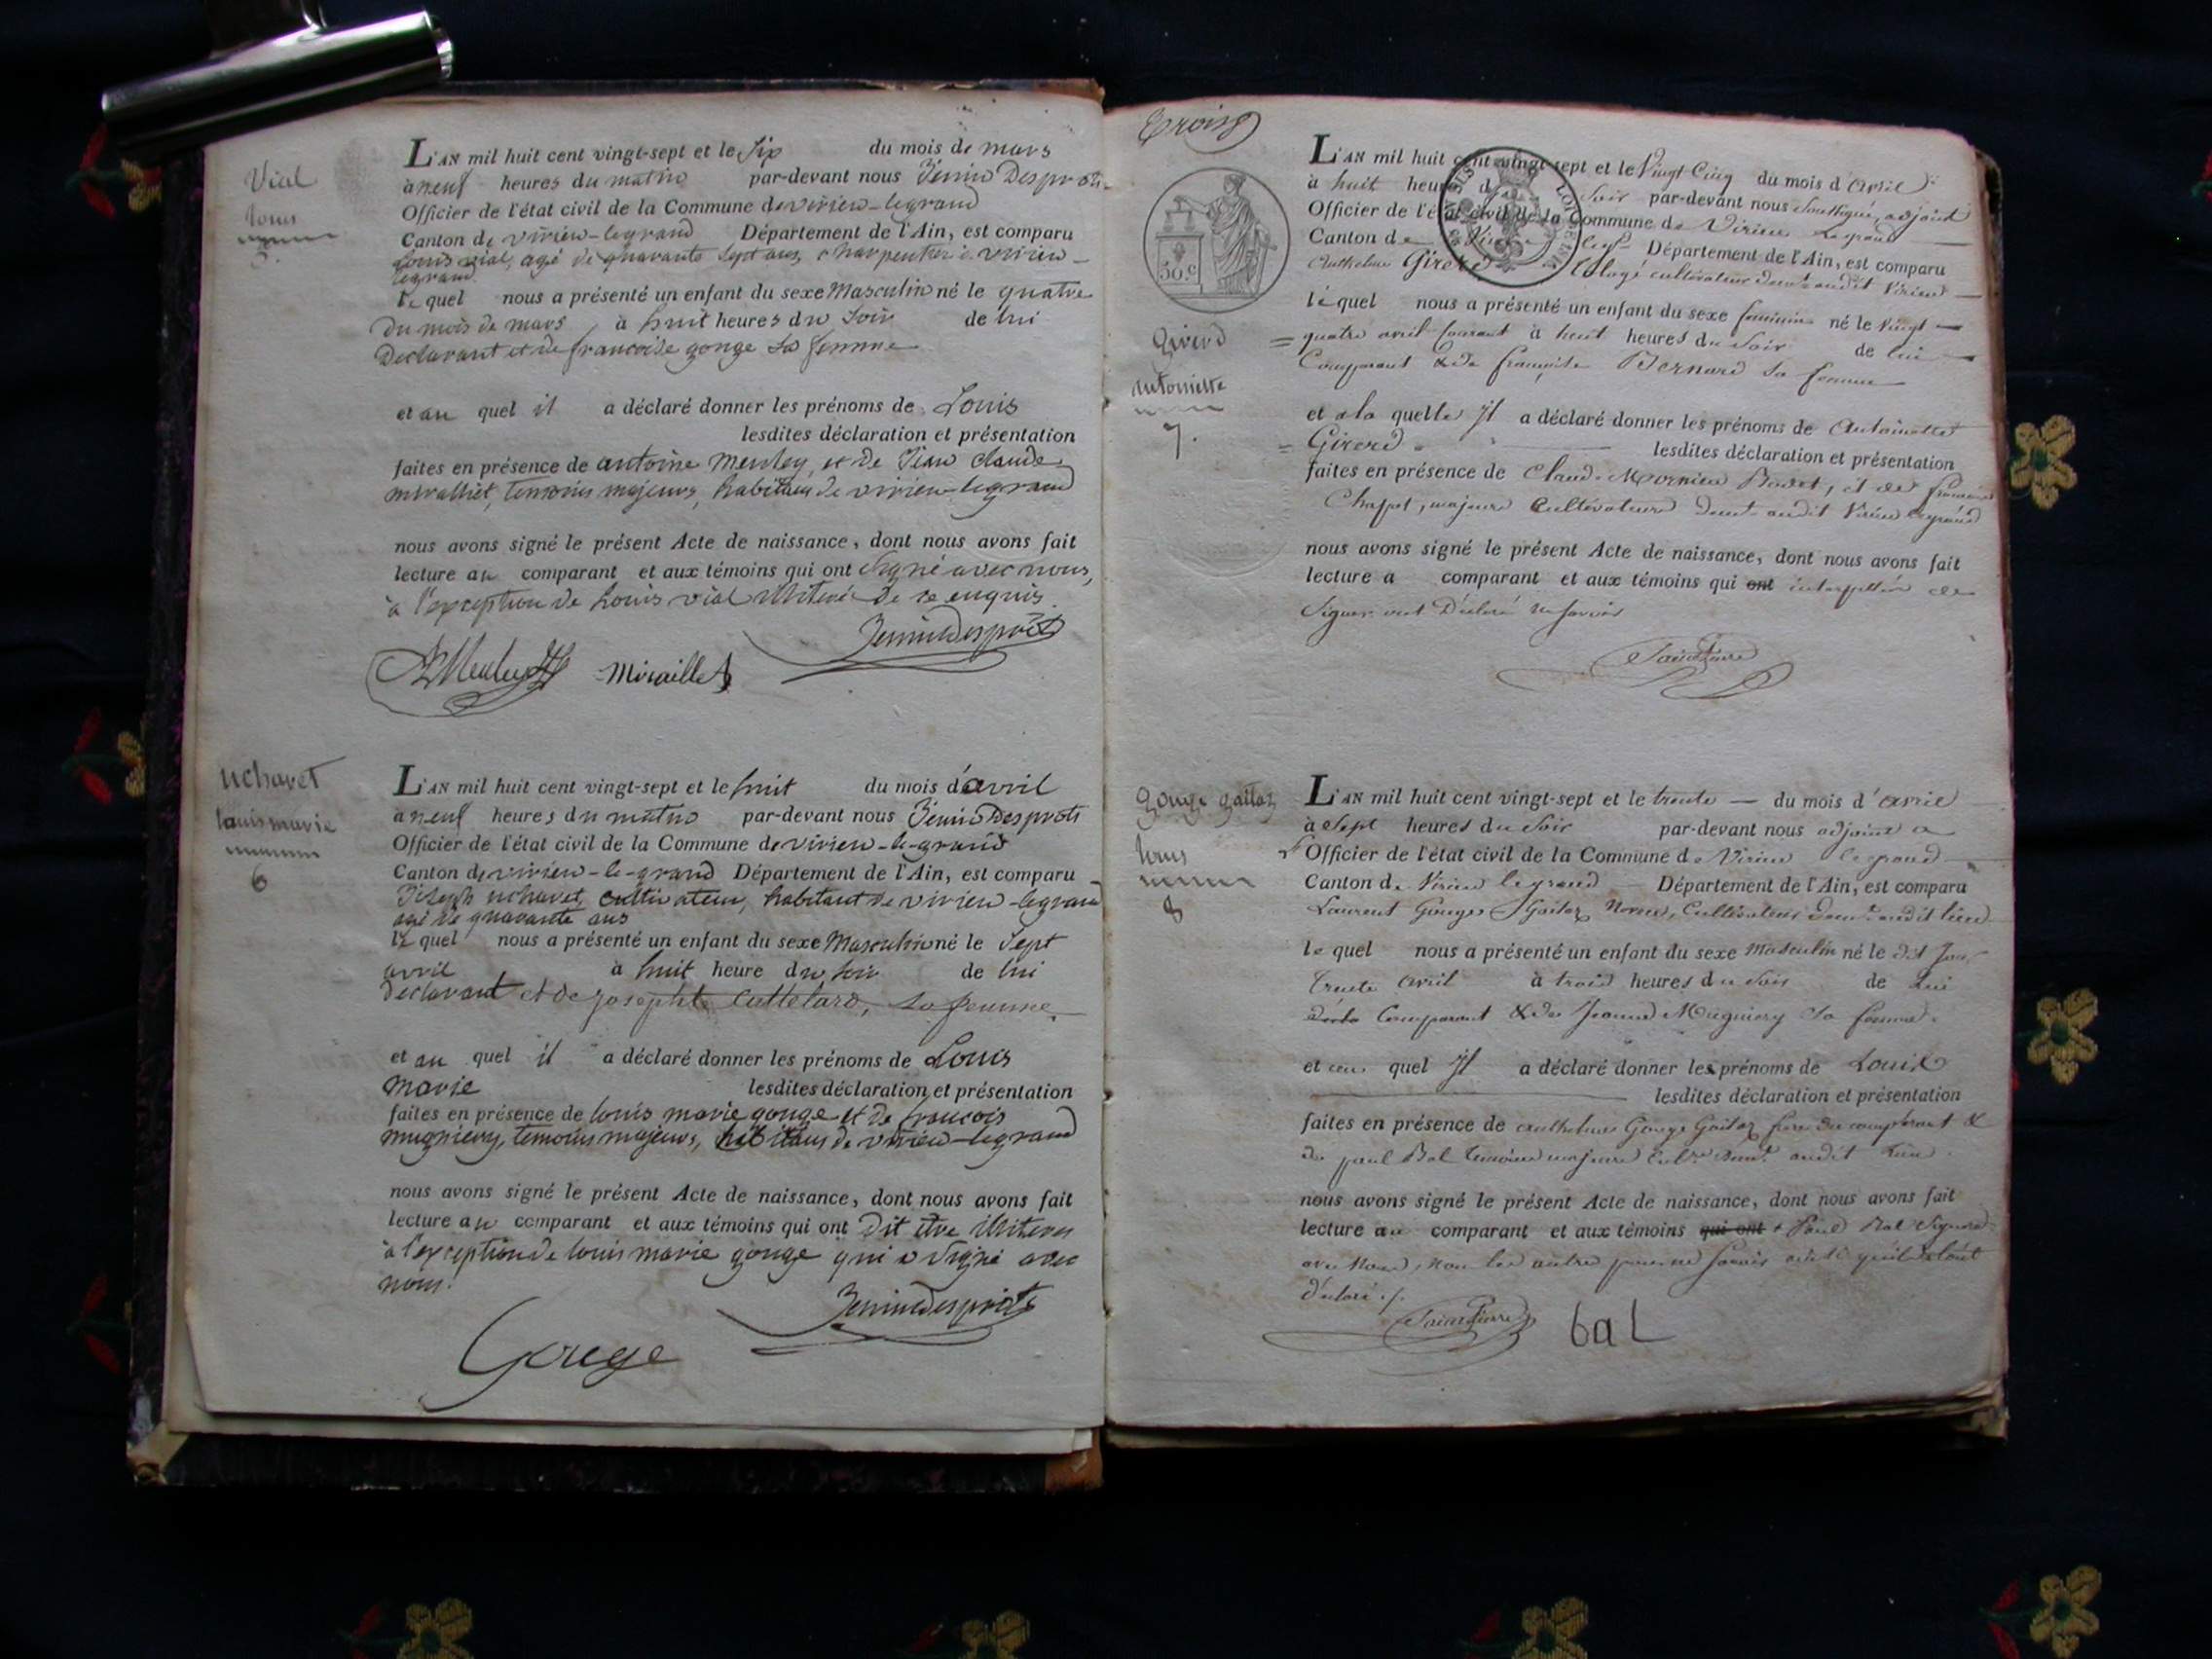 Vial
Louis
5.
L'AN mil huit cent vingt-sept et le six du mois de mars
à neuf heures du matin par-devant nous
Officier de l'état civil de la Commune de virieu-legrand
Canton de virieu-legrand Département de l'Ain, est comparu
Louis vial, agé de quarante sept ans, charpentier à virieu-
legrand
lequel nous a présenté un enfant du sexe Masculin né le quatre
du mois de mars à huit heures du soir de lui
Declarant et de francoise gonge sa femme
et au quel il a déclaré donner les prénoms de Louis
lesdites déclaration et présentation
faites en présence de antoine Meuley, et de Jean claude
miraillet, temoins majeurs, habitans de virieu-legrand
nous avons signé le présent Acte de naissance, dont nous avons fait
lecture au comparant et aux témoins qui ont signé avec nous,
à l'exception de Louis vial illiteré de ce enquis.
Miraillet
uchavet
louis marie
6
L'AN mil huit cent vingt-sept et le huit du mois d'avril
à neuf heures du matin par-devant nous
Officier de l'état civil de la Commune de virieu-le-grand
Canton de virieu-le-grand Département de l'Ain, est comparu
Joseph uchavet, cultivateur, habitant de virieu-legrand
agé de quarante ans
le quel nous a présenté un enfant du sexe Masculin né le sept
avril à huit heure du soir de lui
declarant et de josephte Cattelard, sa femme.
et au quel il a déclaré donner les prénoms de Louis
marie lesdites déclaration et présentation
faites en présence de louis marie gouge et de francois
mugniery, temoins majeurs, habitans de virieu-legrand
nous avons signé le présent Acte de naissance, dont nous avons fait
lecture au comparant et aux témoins qui ont dit être illiteres
à l'exception de louis marie gouge qui a signé avec
nous.
Gouge
Trois
50.c
Girerd
antoinette
7.
L'AN mil huit cent vingt-sept et le Vingt Cinq du mois d'avril
à huit heures du soir par-devant nous soussigné, adjoint
Officier de l'état civil de la Commune de Virieu Legrand
Canton de Virieu legd Département de l'Ain, est comparu
Anthelme Girerd cultivateur demt audit Virieu
lequel nous a présenté un enfant du sexe feminin né le vingt
= quatre avril courant à huit heures du soir de lui
Comparant & de françoise Bernard sa femme
et a la quelle Il a déclaré donner les prénoms de Antoinette
= Girerd = lesdites déclaration et présentation
faites en présence de Claude Bodet, et de françois
Chappot, majeurs Cultivateurs demt audit Virieu legrand
nous avons signé le présent Acte de naissance, dont nous avons fait
lecture a comparant et aux témoins qui ont interpellés de
signer ont Déclaré ne savoir
Saintpierre
gouge gaillaz
Louis
8
L'AN mil huit cent vingt-sept et le trente du mois d'avril
à sept heures du soir par-devant nous adjoint a
l'Officier de l'état civil de la Commune de Virieu legrand
Canton de Virieu legrand Département de l'Ain, est comparu
Laurent Gouge Cultivateur demt audit lieu
le quel nous a présenté un enfant du sexe masculin né le dit jour
trente avril à trois heures du soir de lui
Comparant & de Jeanne Mugniery sa femme.
et au quel Il a déclaré donner les prénoms de Louis
lesdites déclaration et présentation
faites en présence de anthelme Gouge frère du comparant &
de paul Bal temoins majeurs Cultr demt audit lieu.
nous avons signé le présent Acte de naissance, dont nous avons fait
lecture au comparant et aux témoins qui ont + Paul Bal signera
avec nous, non les autres pour ne savoir ainsi qu'ils l'ont
déclaré ./.
Saintpierre
baL